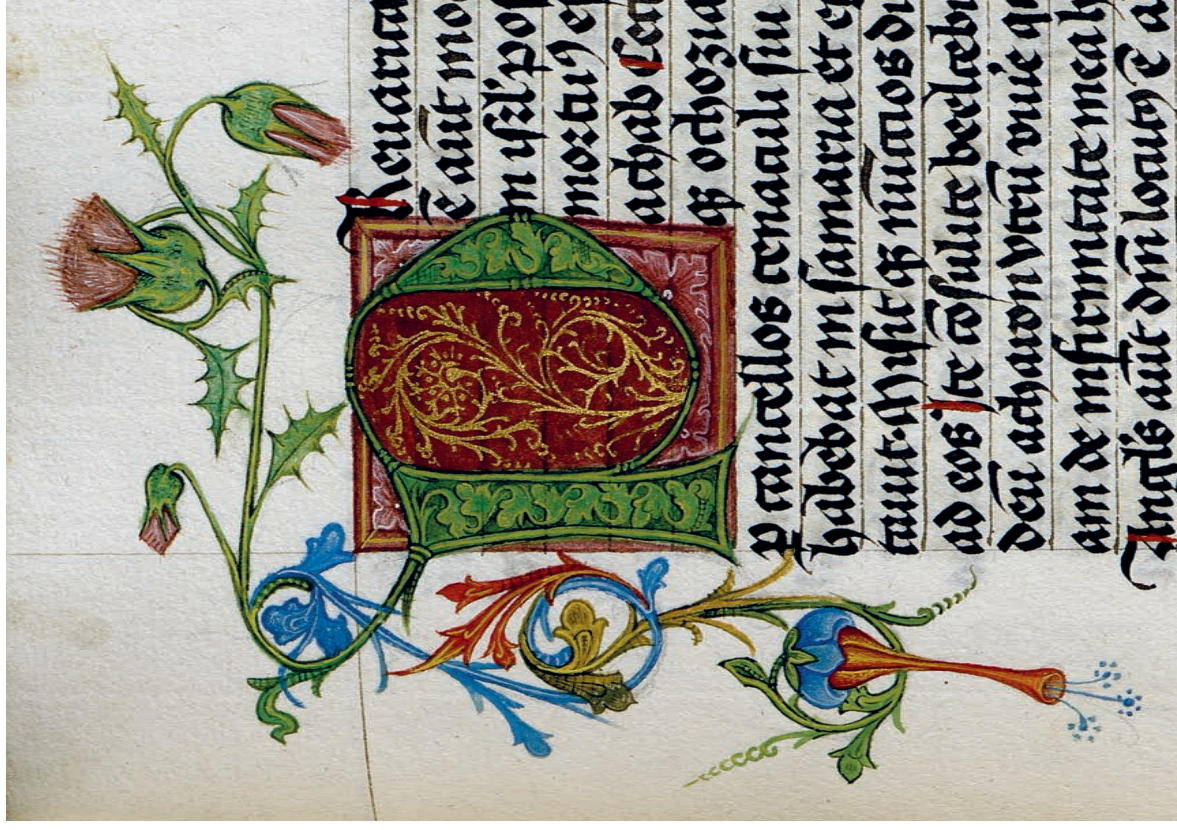 PReuarica
ē aūt moa
in isrl' po
mortuꝰ e
achab Cec
qꝫ ochozia
ꝑ cancellos cenaculi su
habebat in samaria et eg
tauit. Misitqꝫ nūcios di
ad eos Ite cōsulite beelzebu
deū acharon vtrū viuē qu
am de infirmitate mea h
Anglꝰs aūt dn̄i locutꝰ ē a